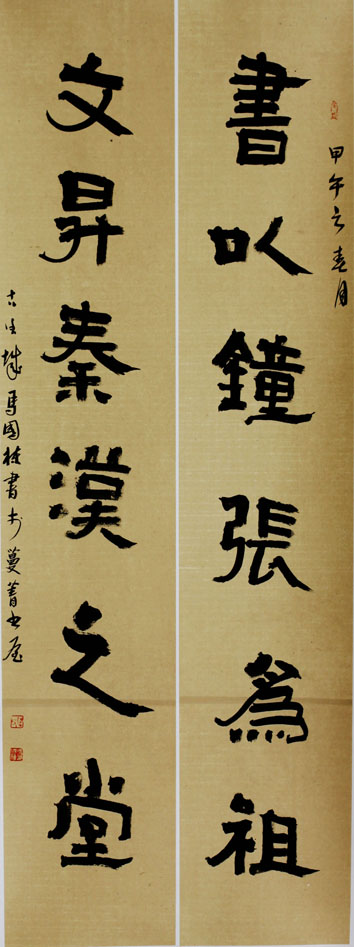 甲午之春月
書以鐘張為祖
文昇秦漢之堂
馬國桂書於